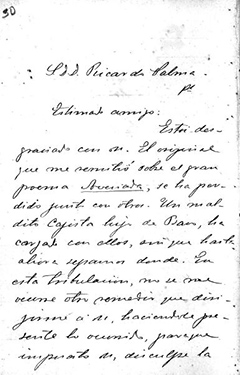 30
S. D. D. Ricardo Palma.
Pte
Estimado amigo:
Está des-
graciado con U. El original
que me remitió sobre el gran
poema Armiada, se ha per-
dido junto con otros. Un mal-
dito cajista hijo de Baco, ha
cargado con ellos, sin que hasta
ahora sepamos donde. En
esta tribulación, no se me
ocurre otro remedio que diri-
girme a U, haciendole pre-
sente lo ocurrido, para que
impuesto U, disculpe la